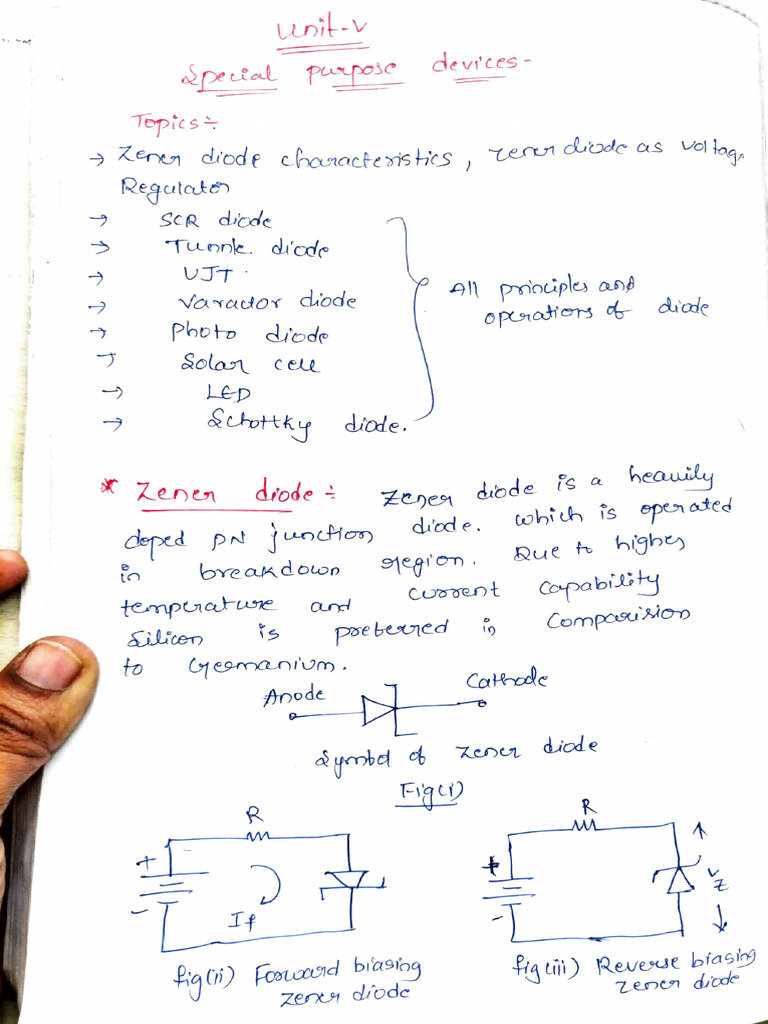 Unit-V
Special purpose devices-
Topics:-
→ Zener diode characteristics, zener diode as voltage
Regulator
→ SCR diode
→ Tunnel diode
→ UJT
→ Varactor diode
→ Photo diode
→ Solar cell
→ LED
→ Schottky diode.
All principles and
operations of diode
* Zener diode:- Zener diode is a heavily
doped PN junction diode. which is operated
in breakdown region. Due to higher
temperature and current capability
Silicon is preferred in comparision
to Germanium.
Anode Cathode
Symbol of Zener diode
Fig(i)
R
+
-
If
fig(ii) Forward biasing
Zener diode
R
+
-
Vz
fig(iii) Reverse biasing
Zener diode